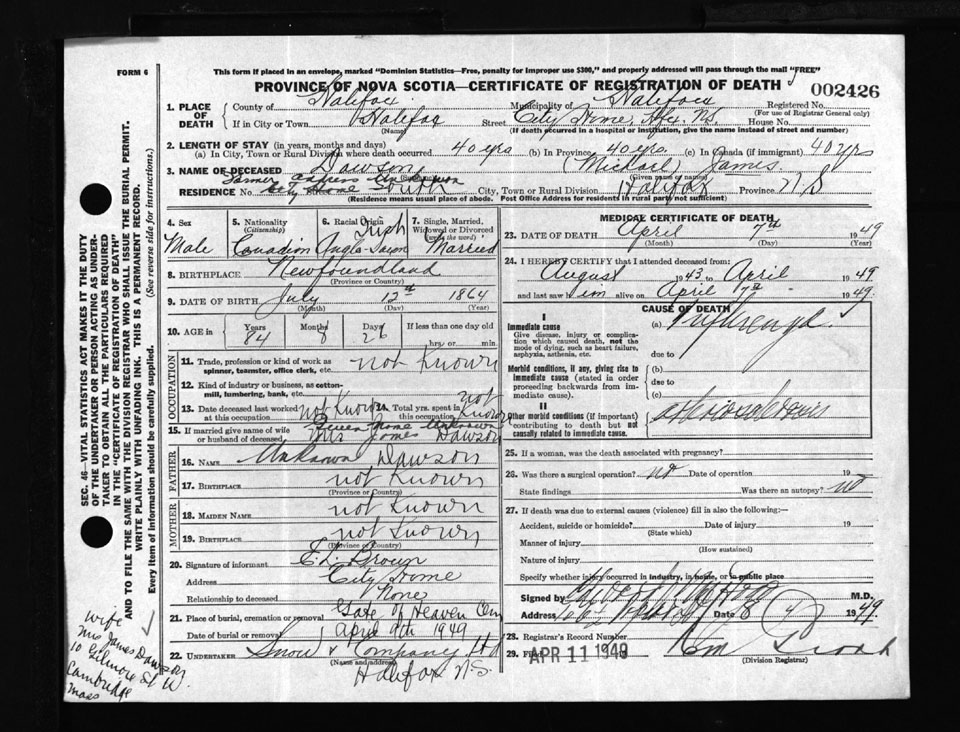 FORM 6
This form if placed in an envelope, marked "Dominion Statistics—Free, penalty for improper use $300," and properly addressed will pass through the mail "FREE"
PROVINCE OF NOVA SCOTIA—CERTIFICATE OF REGISTRATION OF DEATH
002426
1. PLACE OF DEATH County of Halifax Municipality of Halifax Registered No.
(For use of Registrar General only)
If in City or Town Halifax Street City Home, Hfx. N.S. House No.
(Name) (If death occurred in a hospital or institution, give the name instead of street and number)
2. LENGTH OF STAY (in years, months and days)
(a) In City, Town or Rural Division where death occurred 40 yrs (b) In Province 40 yrs. (c) In Canada (if immigrant) 40 yrs
3. NAME OF DECEASED Dawson (Michael) James
(Given name or names)
RESIDENCE No. City Home South City, Town or Rural Division Halifax Province N S
(Residence means usual place of abode. Post Office Address for residents in rural parts not sufficient)
4. Sex Male
5. Nationality (Citizenship) Canadian
6. Racial Origin Irish Anglo-Saxon
7. Single, Married, Widowed or Divorced (write the word) Married
8. BIRTHPLACE Newfoundland
(Province or Country)
9. DATE OF BIRTH July 12th 1864
(Month) (Day) (Year)
10. AGE in Years 84 Months 8 Days 26 If less than one day old
hrs. or min.
OCCUPATION
11. Trade, profession or kind of work as spinner, teamster, office clerk, etc. not Known
12. Kind of industry or business, as cotton-mill, lumbering, bank, etc.
13. Date deceased last worked at this occupation not Known 14. Total yrs. spent in this occupation not Known
15. If married give name of wife or husband of deceased Given Name Unknown
Mrs James Dawson
FATHER
16. NAME Unknown Dawson
17. BIRTHPLACE not Known
(Province or Country)
MOTHER
18. MAIDEN NAME not Known
19. BIRTHPLACE not Known
(Province or Country)
20. Signature of informant E L Brown
Address City Home
Relationship to deceased None
21. Place of burial, cremation or removal Gate of Heaven Cem
Date of burial or removal April 9th 1949
22. UNDERTAKER Snow & Company Ltd
(Name and address)
Halifax N.S.
MEDICAL CERTIFICATE OF DEATH
23. DATE OF DEATH April 7th 1949
(Month) (Day) (Year)
24. I HEREBY CERTIFY that I attended deceased from:
August 1943 to April 1949
and last saw him alive on April 7th 1949.
CAUSE OF DEATH
I
Immediate cause (a)
Give disease, injury or complication which caused death, not the mode of dying, such as heart failure, asphyxia, asthenia, etc.
due to
Morbid conditions, if any, giving rise to immediate cause (stated in order proceeding backwards from immediate cause).
(b)
due to
(c)
II
Other morbid conditions (if important) contributing to death but not causally related to immediate cause.
25. If a woman, was the death associated with pregnancy?
26. Was there a surgical operation? no Date of operation 19
State findings Was there an autopsy? no
27. If death was due to external causes (violence) fill in also the following:—
Accident, suicide or homicide? Date of injury 19
(State which)
Manner of injury
(How sustained)
Nature of injury
Specify whether injury occurred in industry, in home, or in public place
Signed by M.D.
Address Date 8 4 1949
28. Registrar's Record Number
29. Filed APR 11 1949
(Division Registrar)
SEC. 46—VITAL STATISTICS ACT MAKES IT THE DUTY OF THE UNDERTAKER OR PERSON ACTING AS UNDERTAKER TO OBTAIN ALL THE PARTICULARS REQUIRED IN THE "CERTIFICATE OF REGISTRATION OF DEATH"
AND TO FILE THE SAME WITH THE DIVISION REGISTRAR WHO SHALL ISSUE THE BURIAL PERMIT.
WRITE PLAINLY WITH UNFADING INK. THIS IS A PERMANENT RECORD.
Every item of information should be carefully supplied. (See reverse side for instructions.)
Wife
Mrs James Dawson
10 Gilmore St W.
Cambridge
Mass